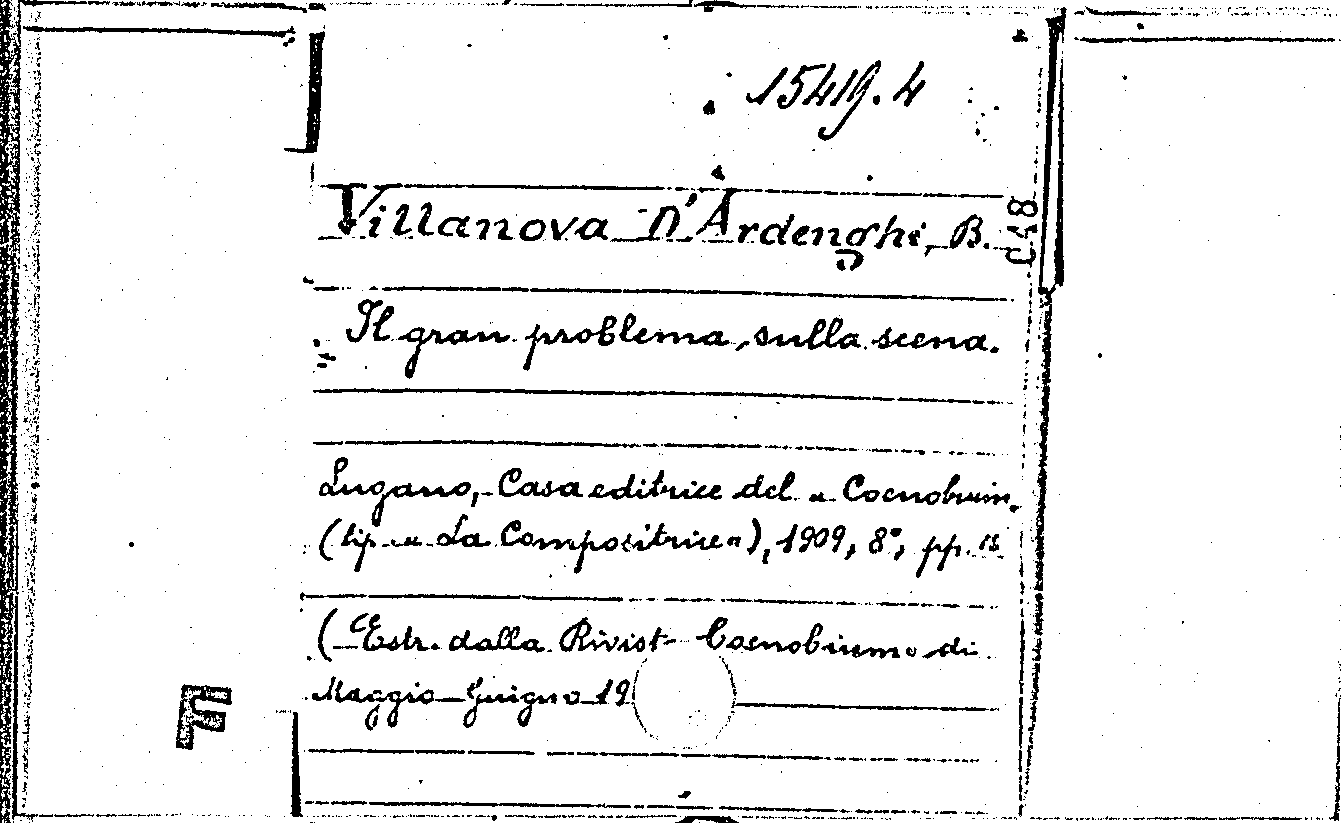 15419.4
Villanova D'Ardenghi, B.
Il gran problema sulla scena.
Lugano, Casa editrice del « Coenobium
(tip. « La Compositrice »), 1909, 8°, pp.
(Estr. dalla Rivist Coenobium di
Maggio-Giugno 19
F